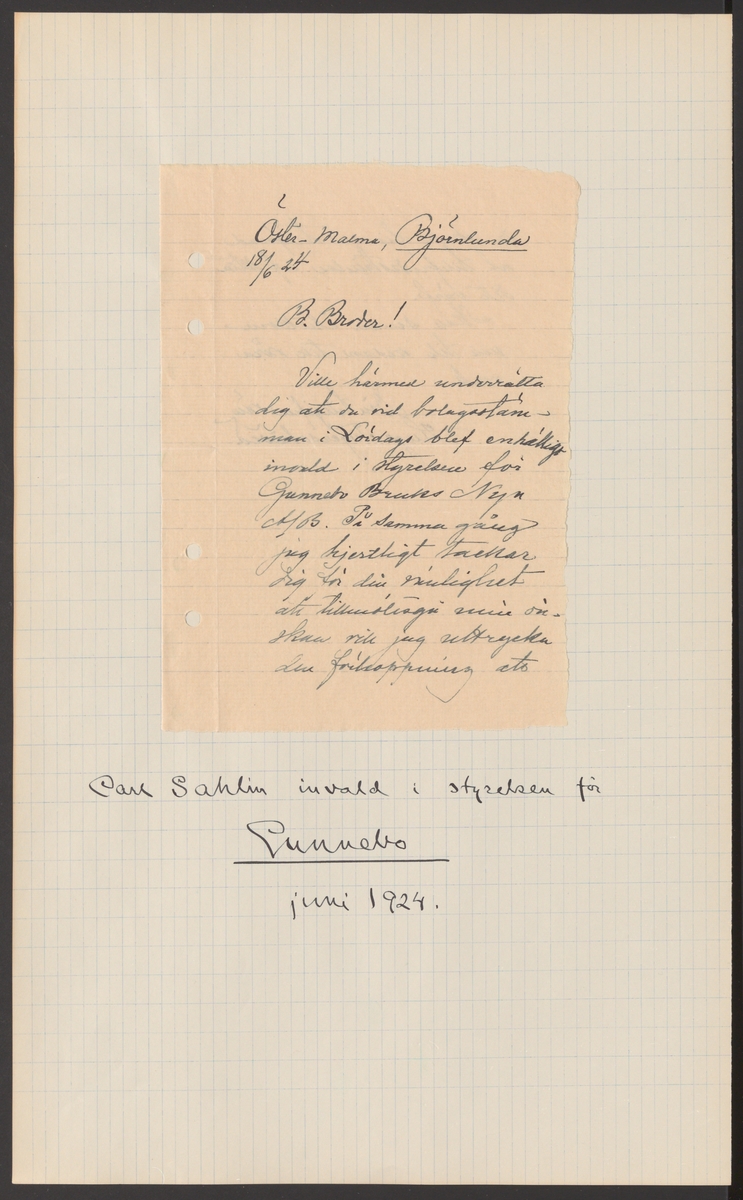 Öster-Malma, Björnlunda
18/6 24
B. Broder!
Ville härmed underrätta
dig att du vid bolagsstäm-
man i Lördags blef enhälligt
invald i styrelsen för
Gunnebo Bruks Nya
A/B. På samma gång
jag hjertligt tackar
dig för din vänlighet
att tillmötesgå min ön-
skan vill jag uttrycka
den förhoppning att
Carl Sahlin invald i styrelsen för
Gunnebo
juni 1924.